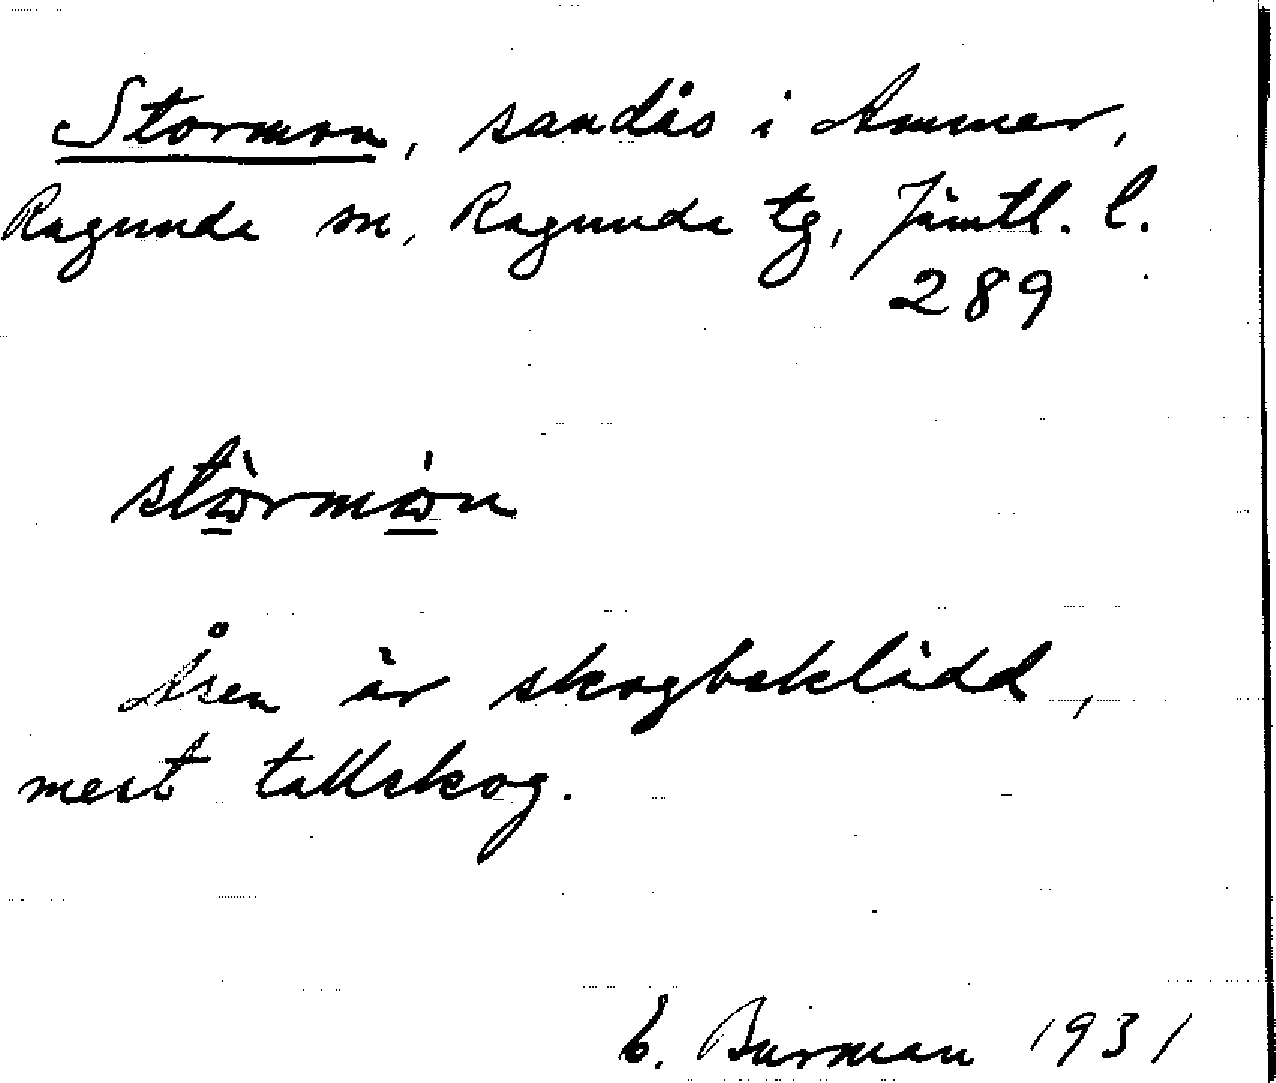 Stormon, sandås i Ammer,
Ragunda sn, Ragunda tg, Jämtl. l.
289
stòrmòn
Åsen är skogbeklädd,
mest tallskog.
E. Burman 1931